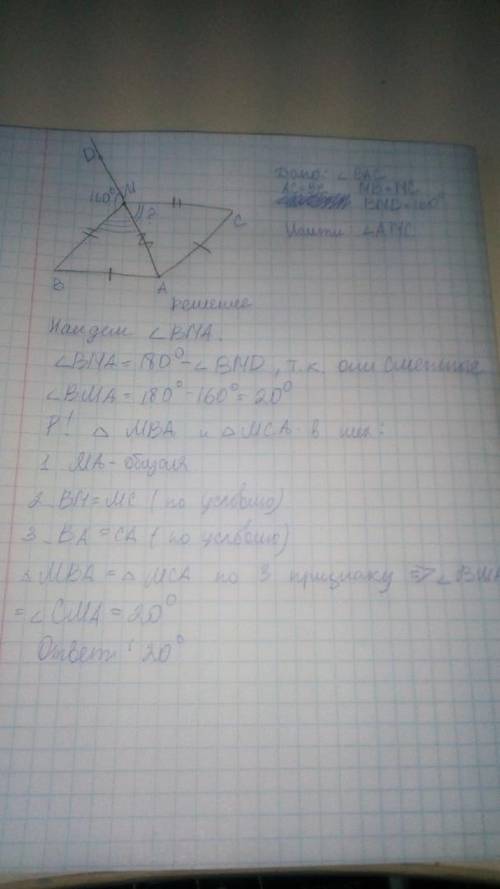 D
M
160°
?
C
B
A
Дано: ∠BAC
AC=BA MB=MC
BMD=160°
Найти ∠AMC
Решение
Найдем ∠BMA.
∠BMA = 180° - ∠BMD, т.к. они смежные
∠BMA = 180° - 160° = 20°
Р! △ MBA и △ MCA в них:
1. MA - общая
2. BM = MC (по условию)
3. BA = CA (по условию)
△ MBA = △ MCA по 3 признаку => ∠BMA
= ∠CMA = 20°
Ответ: 20°